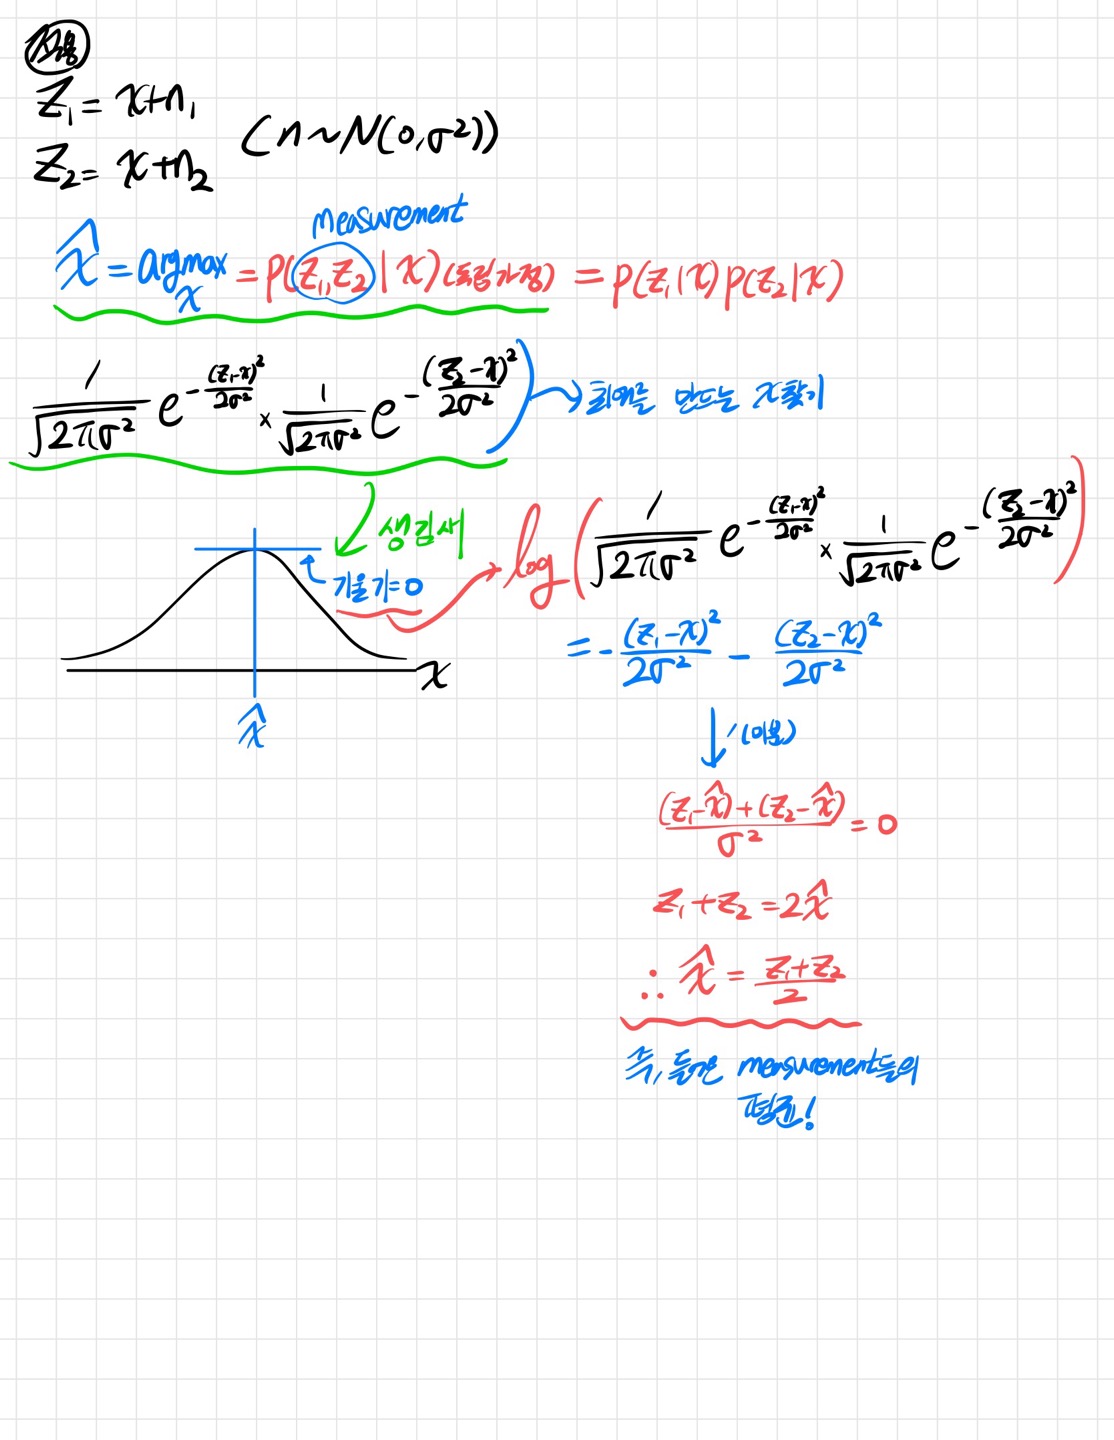 적용
Z₁ = x+n₁
Z₂ = x+n₂
(n~N(0,σ²))
measurement
x̂ = argmax_x = P(Z₁,Z₂|x)(독립가정) = P(Z₁|x)P(Z₂|x)
1/√(2πσ²) e^(-(Z₁-x)²/2σ²) × 1/√(2πσ²) e^(-(Z₂-x)²/2σ²) → 최댓값을 만드는 x찾기
생김새
기울기=0
x
x̂
log(1/√(2πσ²) e^(-(Z₁-x)²/2σ²) × 1/√(2πσ²) e^(-(Z₂-x)²/2σ²))
= -(Z₁-x)²/2σ² - (Z₂-x)²/2σ²
↓ ′(미분)
((Z₁-x̂)+(Z₂-x̂))/σ² = 0
Z₁+Z₂ = 2x̂
∴ x̂ = (Z₁+Z₂)/2
즉, measurement들의
평균!